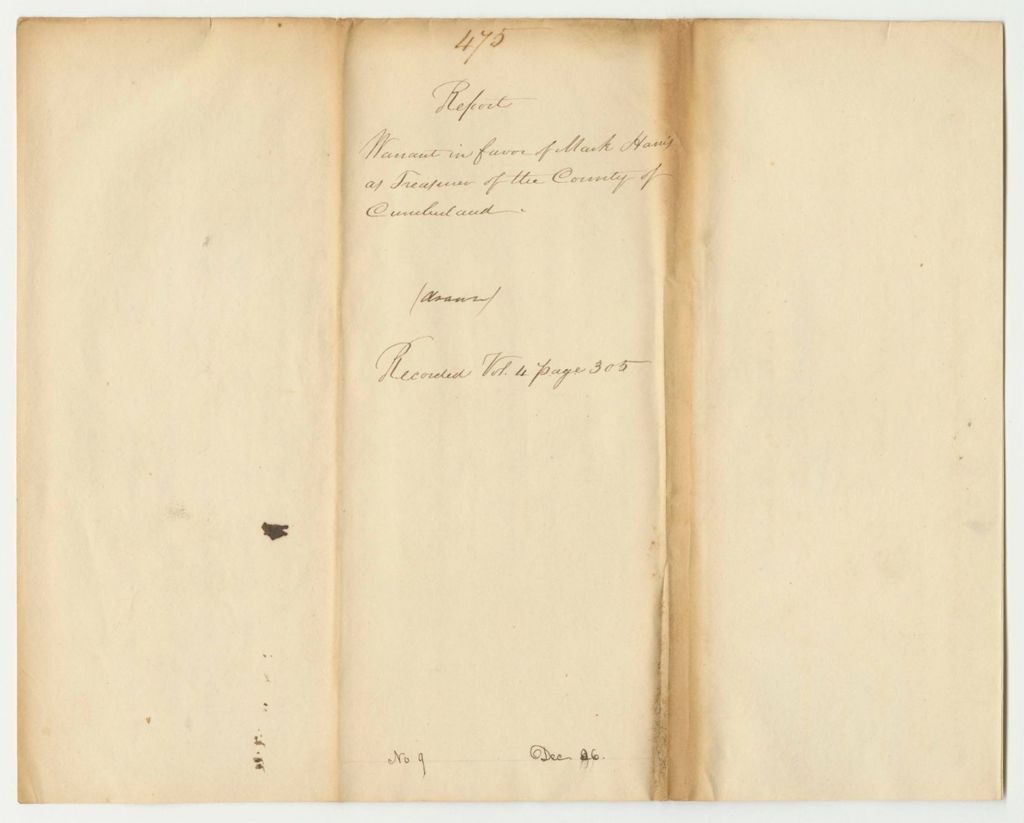 475
Report
Warrant in favor of Mark Harris
as Treasurer of the County of
Cumberland.
(drawn)
Recorded Vol. 4 page 305
No 9 Dec 26.